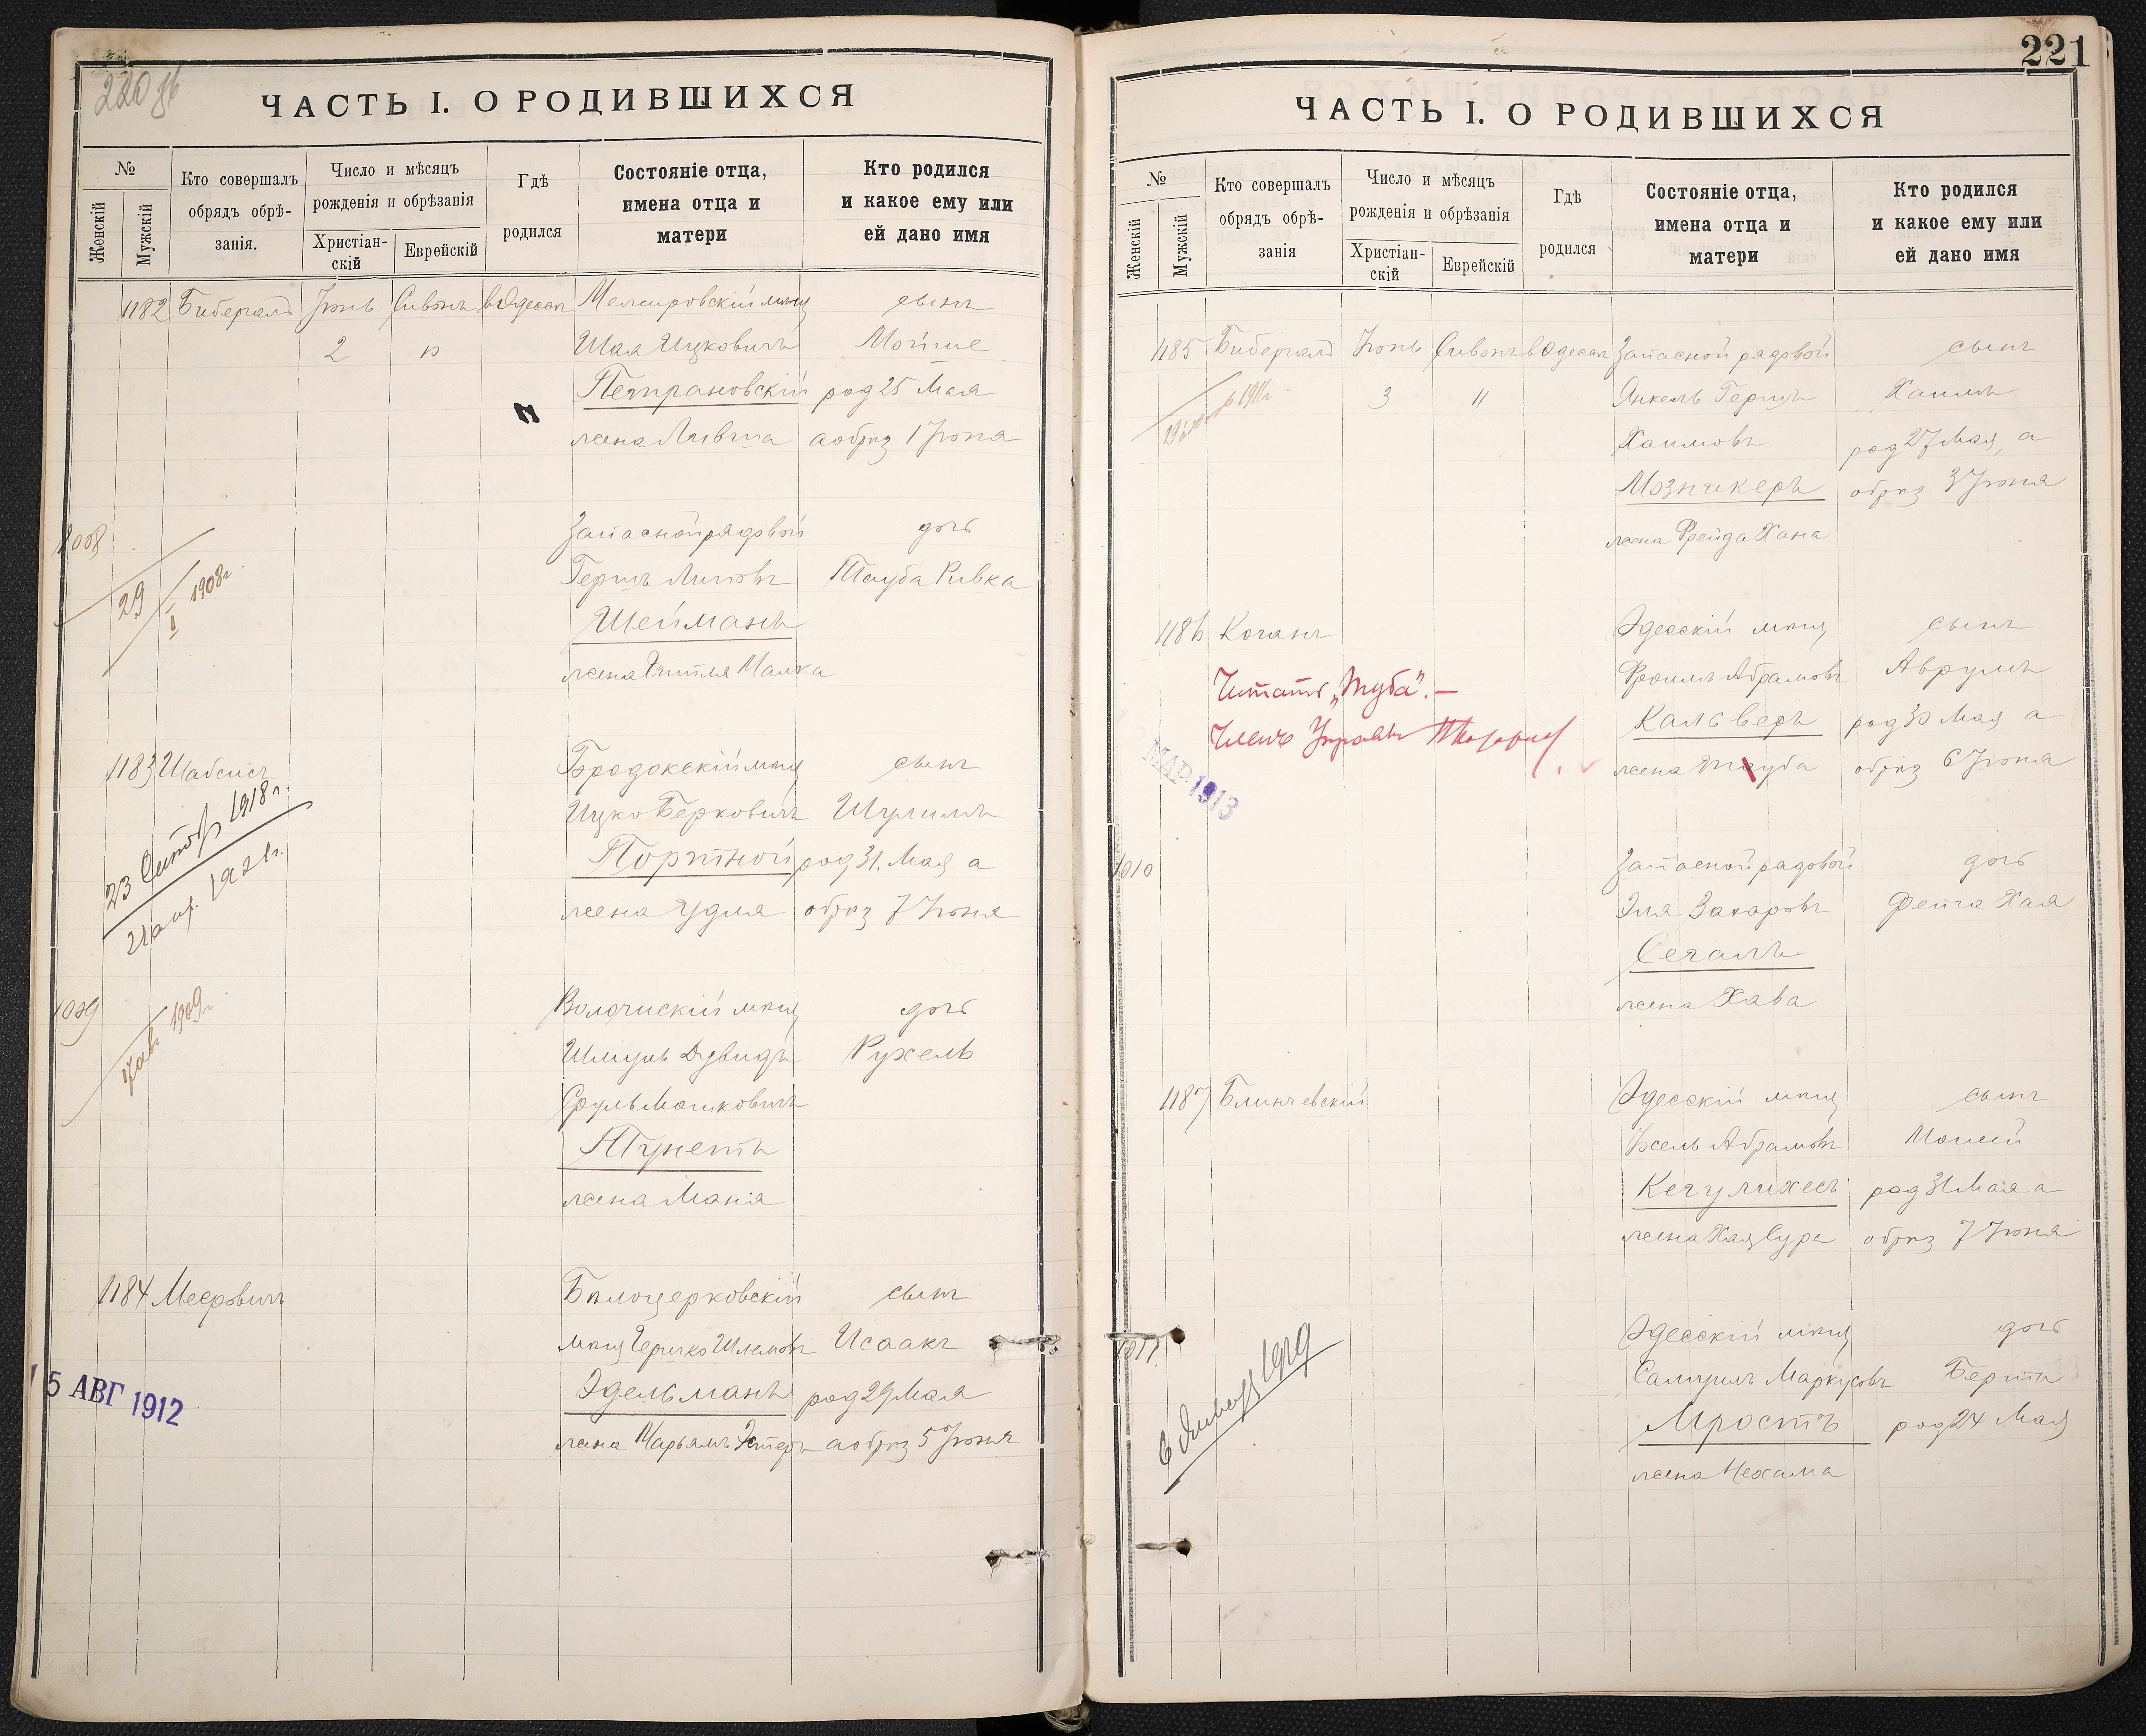 220 об
ЧАСТЬ I. О РОДИВШИХСЯ
№
Женскій
Мужскій
Кто совершалъ
обрядъ обрѣ-
занія.
Число и мѣсяцъ
рожденія и обрѣзанія
Христіан-
скій
Еврейскій
Гдѣ
родился
Состояніе отца,
имена отца и
матери
Кто родился
и какое ему или
ей дано имя
1182 Бибергалъ Іюнь Сивонъ въ Одессѣ мѣщ сынъ
2 10 Шая Ицковичъ Мойше
Петрановскій род 25 Мая
жена а обрѣз 1 Іюня
1008 Запасной рядовой дочь
Гершъ Тауба Ривка
29/I 1908 г.
Шейманъ
жена Малка
1183 Шабсисъ мѣщ сынъ
Ицко Берковичъ Шулимъ
23 1918 г.
Портной род 31 Мая а
21 апр. 1921 г.
жена Удля обрѣз 7 Іюня
1009 Волочискій мѣщ дочь
1909 г
Шмуль Дувидъ Рухель
Сруль Мошковичъ
жена Маня
1184 Мееровичъ Бѣлоцерковскій сынъ
мѣщ Исаакъ
5 АВГ 1912
Эдельманъ род 29 Мая
жена Марьямъ Эстеръ а обрѣз 5 Іюня
221
ЧАСТЬ I. О РОДИВШИХСЯ
№
Женскій
Мужскій
Кто совершалъ
обрядъ обрѣ-
занія
Число и мѣсяцъ
рожденія и обрѣзанія
Христіан-
скій
Еврейскій
Гдѣ
родился
Состояніе отца,
имена отца и
матери
Кто родился
и какое ему или
ей дано имя
1185 Бибергалъ Іюнь Сивонъ въ Одессѣ Запасной рядовой сынъ
3 11 Янкель Гершъ Хаимъ
1911 г
Хаимовъ род 27 Мая, а
Мозникеръ обрѣз 3 Іюня
жена Фрейда Хана
1186 Коганъ Одесскій мѣщ сынъ
Фроимъ Абрамовъ Аврумъ
Читать „Туба“. —
Кальверъ род 30 Мая а
Членъ Управы
жена Тауба обрѣз 6 Іюня
МАР 1913
1010 Запасной рядовой дочь
Эля Захаровъ Фейга Хая
Сегалъ
жена Хава
1187 Блинчевскій Одесскій мѣщ сынъ
Абрамовъ Моисей
Кегулихесъ род 31 Мая а
жена Хая Сура обрѣз 7 Іюня
1011 Одесскій мѣщ дочь
Самуилъ Маркусовъ Берта
6 1919
Мростъ род 24 Мая
жена Нехама